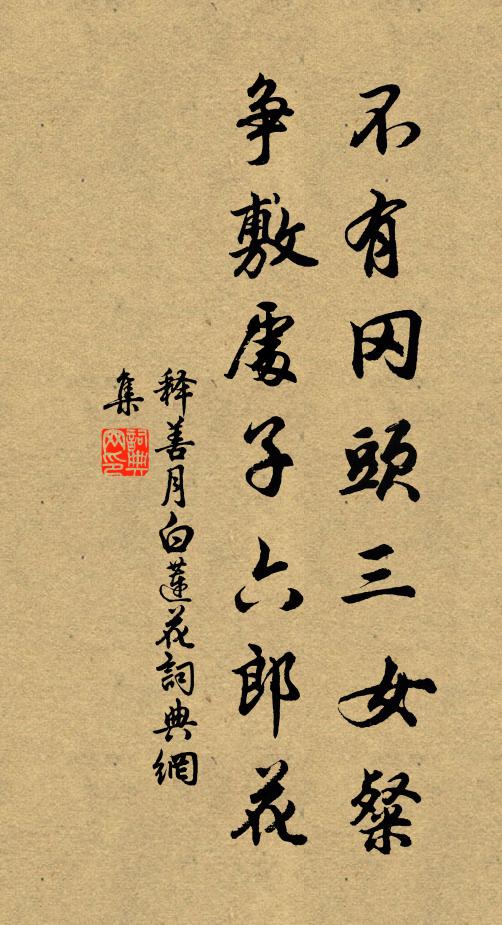 不有冈頭三女粲
争敷處子六郎花
释善月白蓮花詞典網
集
詞典
网印